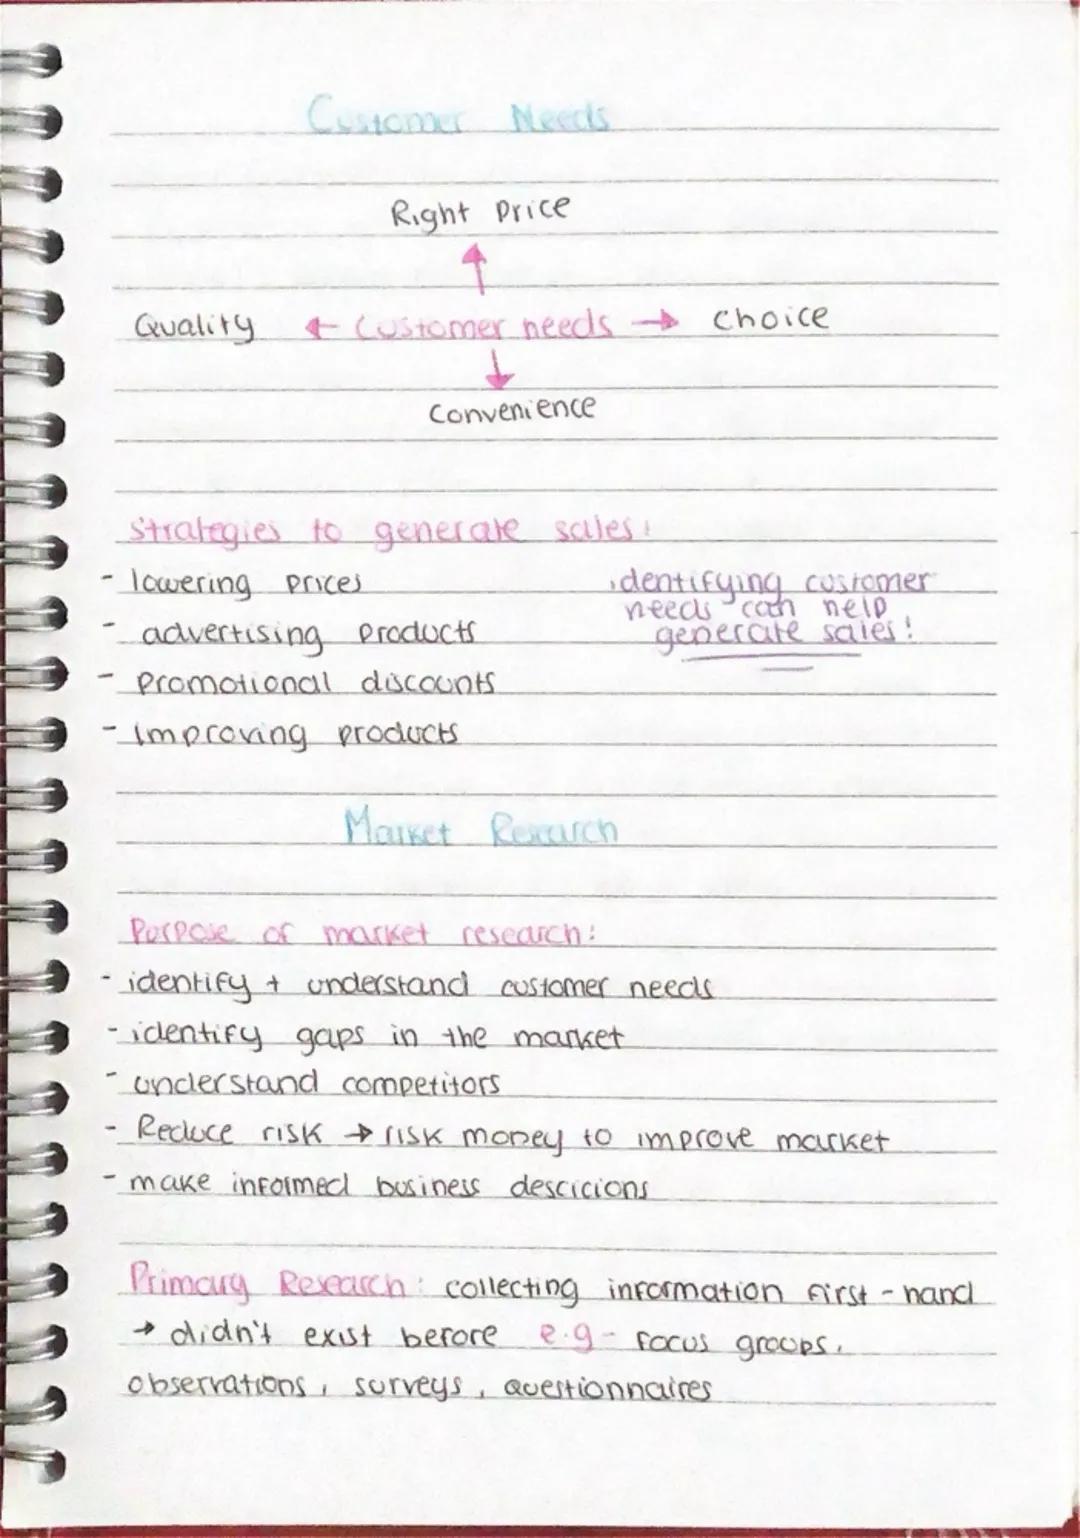 Customer Needs
Right Price
Quality ← Customer needs → choice
Convenience
strategies to generate sales:
- lowering prices
identifying customer
needs can help
- advertising products
generate sales!
- promotional discounts
- improving products
Market Research
Purpose of market research:
- identify + understand customer needs
- identify gaps in the market
- understand competitors
- Reduce risk → risk money to improve market
- make informed business descicions
Primary Research: collecting information first-hand
→ didn't exist before e.g - focus groups,
observations, surveys, questionnaires